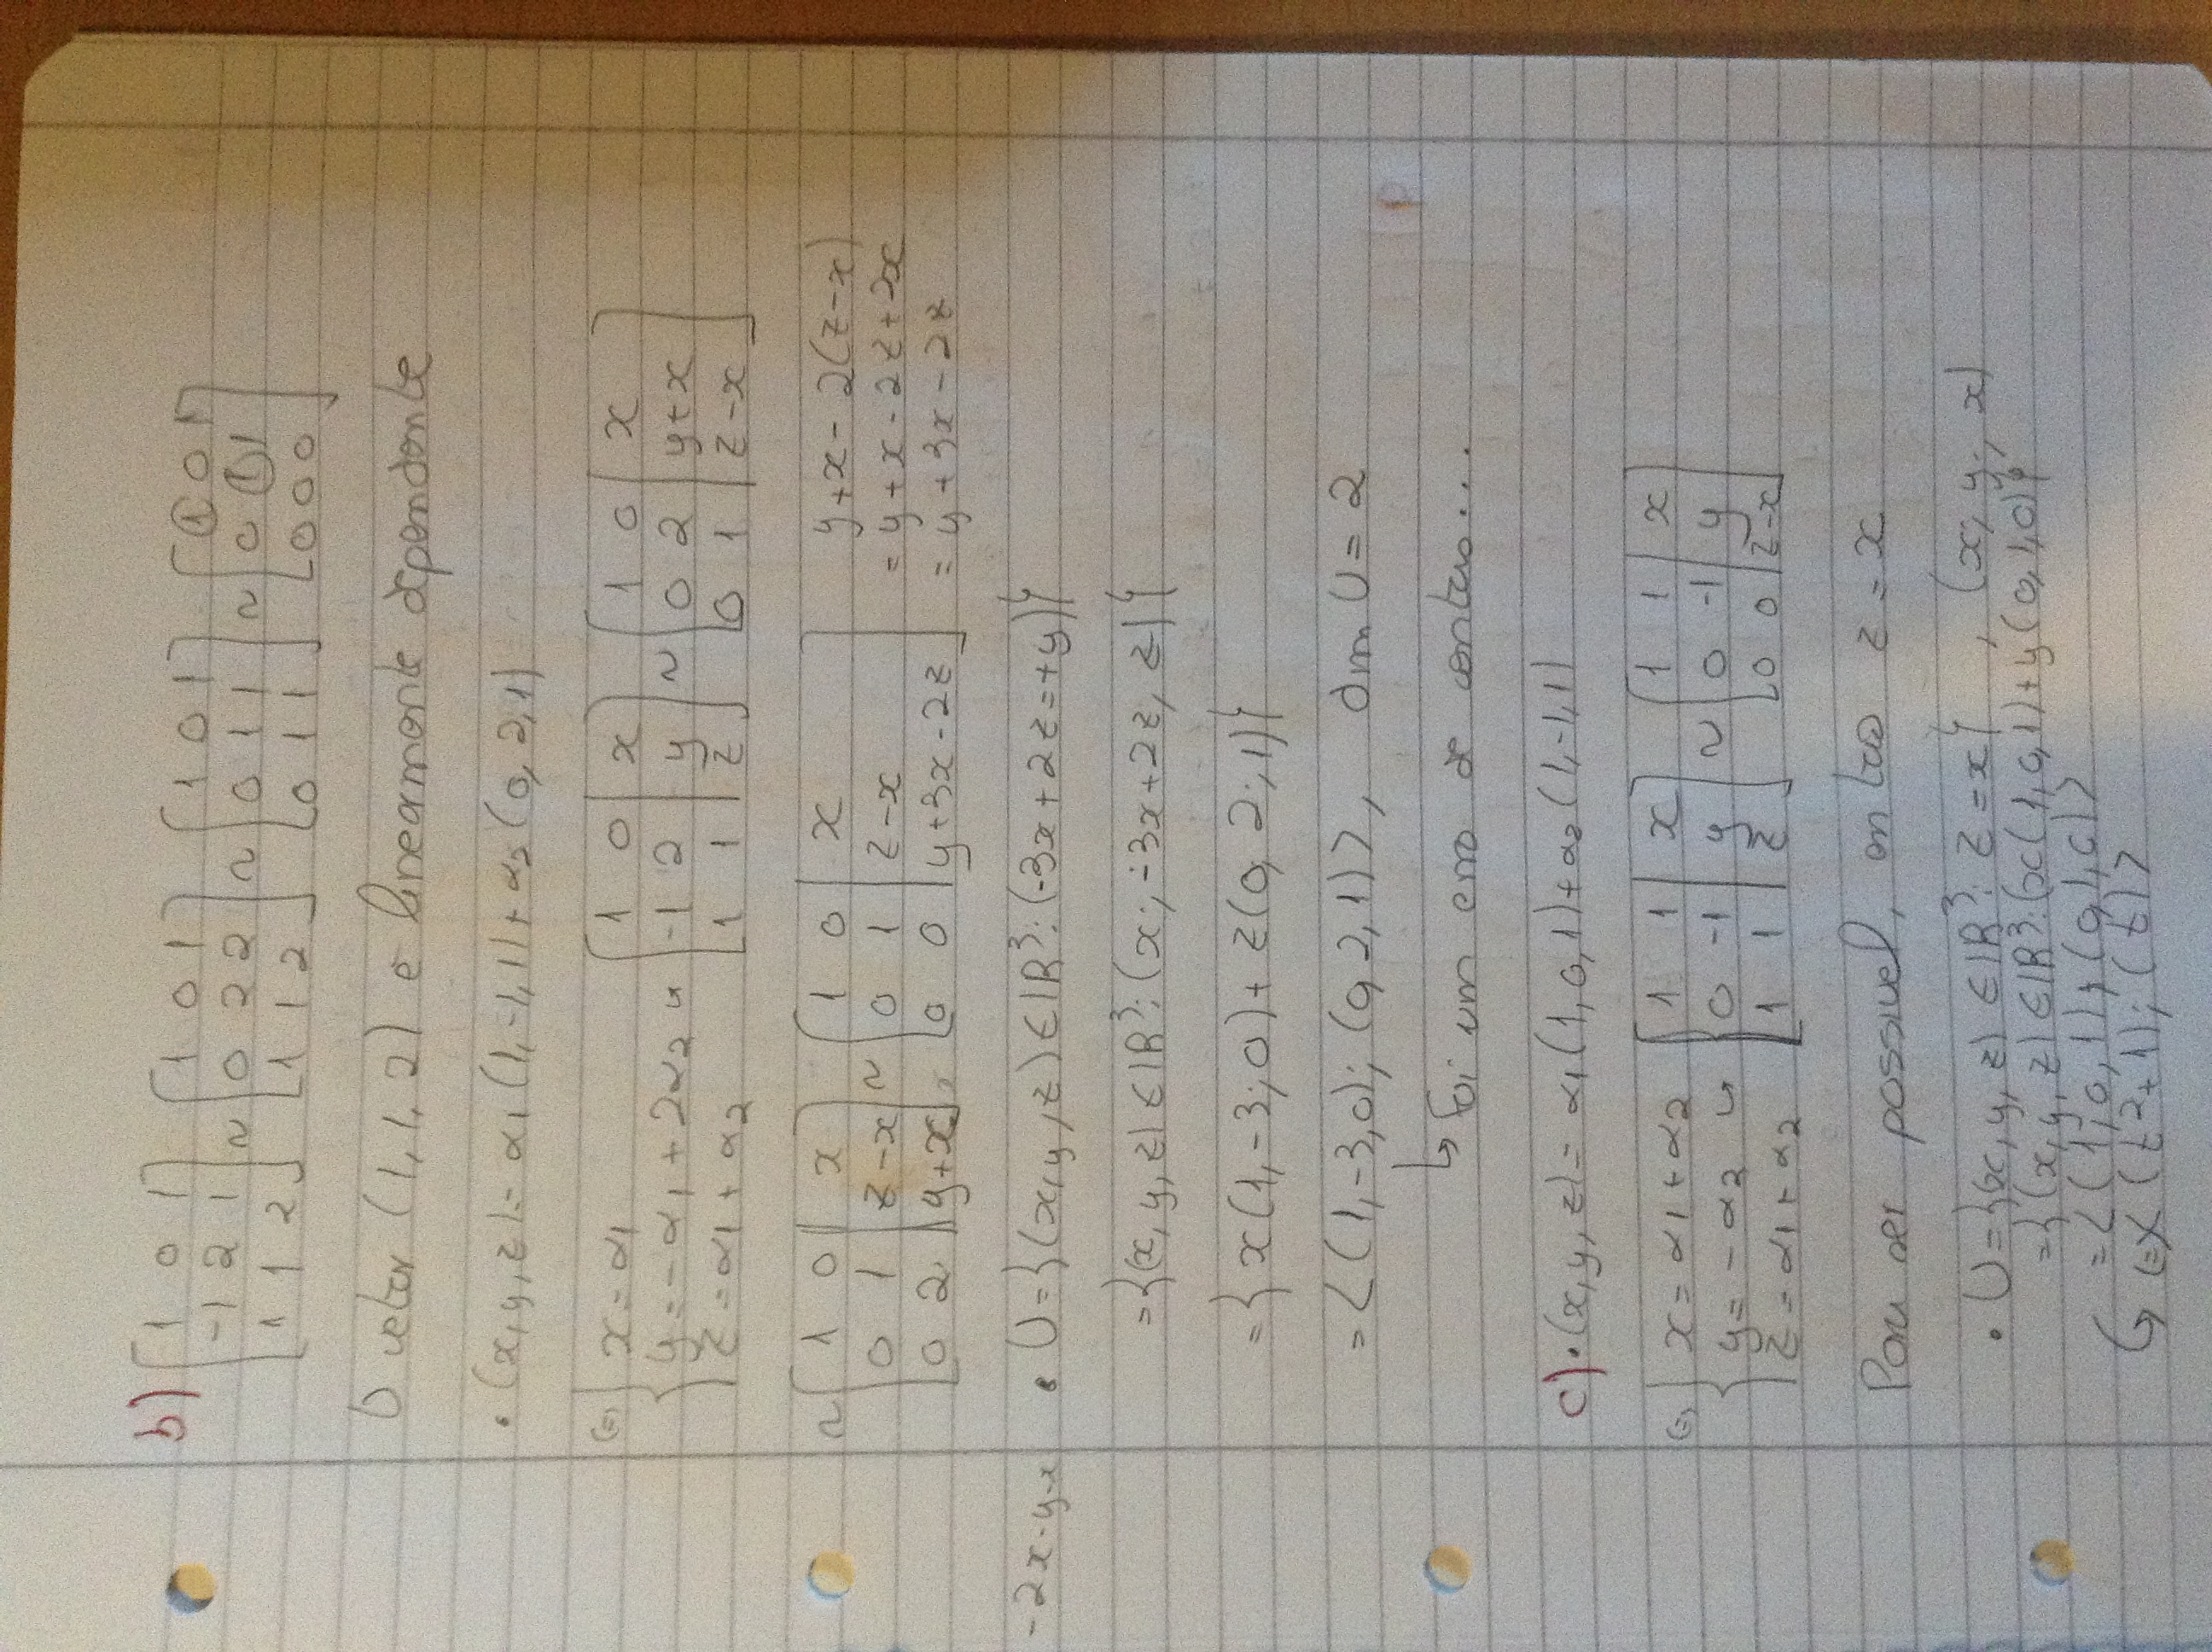 b) [1 0 1; -1 2 1; 1 1 2] ~ [1 0 1; 0 2 2; 1 1 2] ~ [1 0 1; 0 1 1; 0 1 1] ~ [1 0 1; 0 1 1; 0 0 0]
O vetor (1, 1, 2) é linearmente dependente
• (x, y, z) = α1 (1, -1, 1) + α2 (0, 2, 1)
(=) { x = α1; y = -α1 + 2α2; z = α1 + α2 ↳ [1 0 | x; -1 2 | y; 1 1 | z] ~ [1 0 | x; 0 2 | y+x; 0 1 | z-x]
~ [1 0 | x; 0 1 | z-x; 0 2 | y+x] ~ [1 0 | x; 0 1 | z-x; 0 0 | y+3x-2z]
y+x-2(z-x)
= y+x-2z+2x
= y+3x-2z
-2x-y-x
• U = {(x, y, z) ∈ IR³: (-3x + 2z = +y)}
= {(x, y, z) ∈ IR³: (x; -3x+2z, z)}
= { x(1, -3; 0) + z(0, 2; 1)}
= <(1, -3, 0); (0, 2, 1)>, dim U = 2
↳ Foi um erro de contas...
c) • (x, y, z) = α1 (1, 0, 1) + α2 (1, -1, 1)
(=) { x = α1 + α2; y = -α2; z = α1 + α2 ↳ [1 1 | x; 0 -1 | y; 1 1 | z] ~ [1 1 | x; 0 -1 | y; 0 0 | z-x]
Para ser possivel, então z = x
• U = {(x, y, z) ∈ IR³: z = x} , (x; y; x)
= {(x, y, z) ∈ IR³: (x(1, 0, 1) + y(0, 1, 0)}
= <(1, 0, 1), (0, 1, 0)>
↳ (=) < (t²+1); (t)>